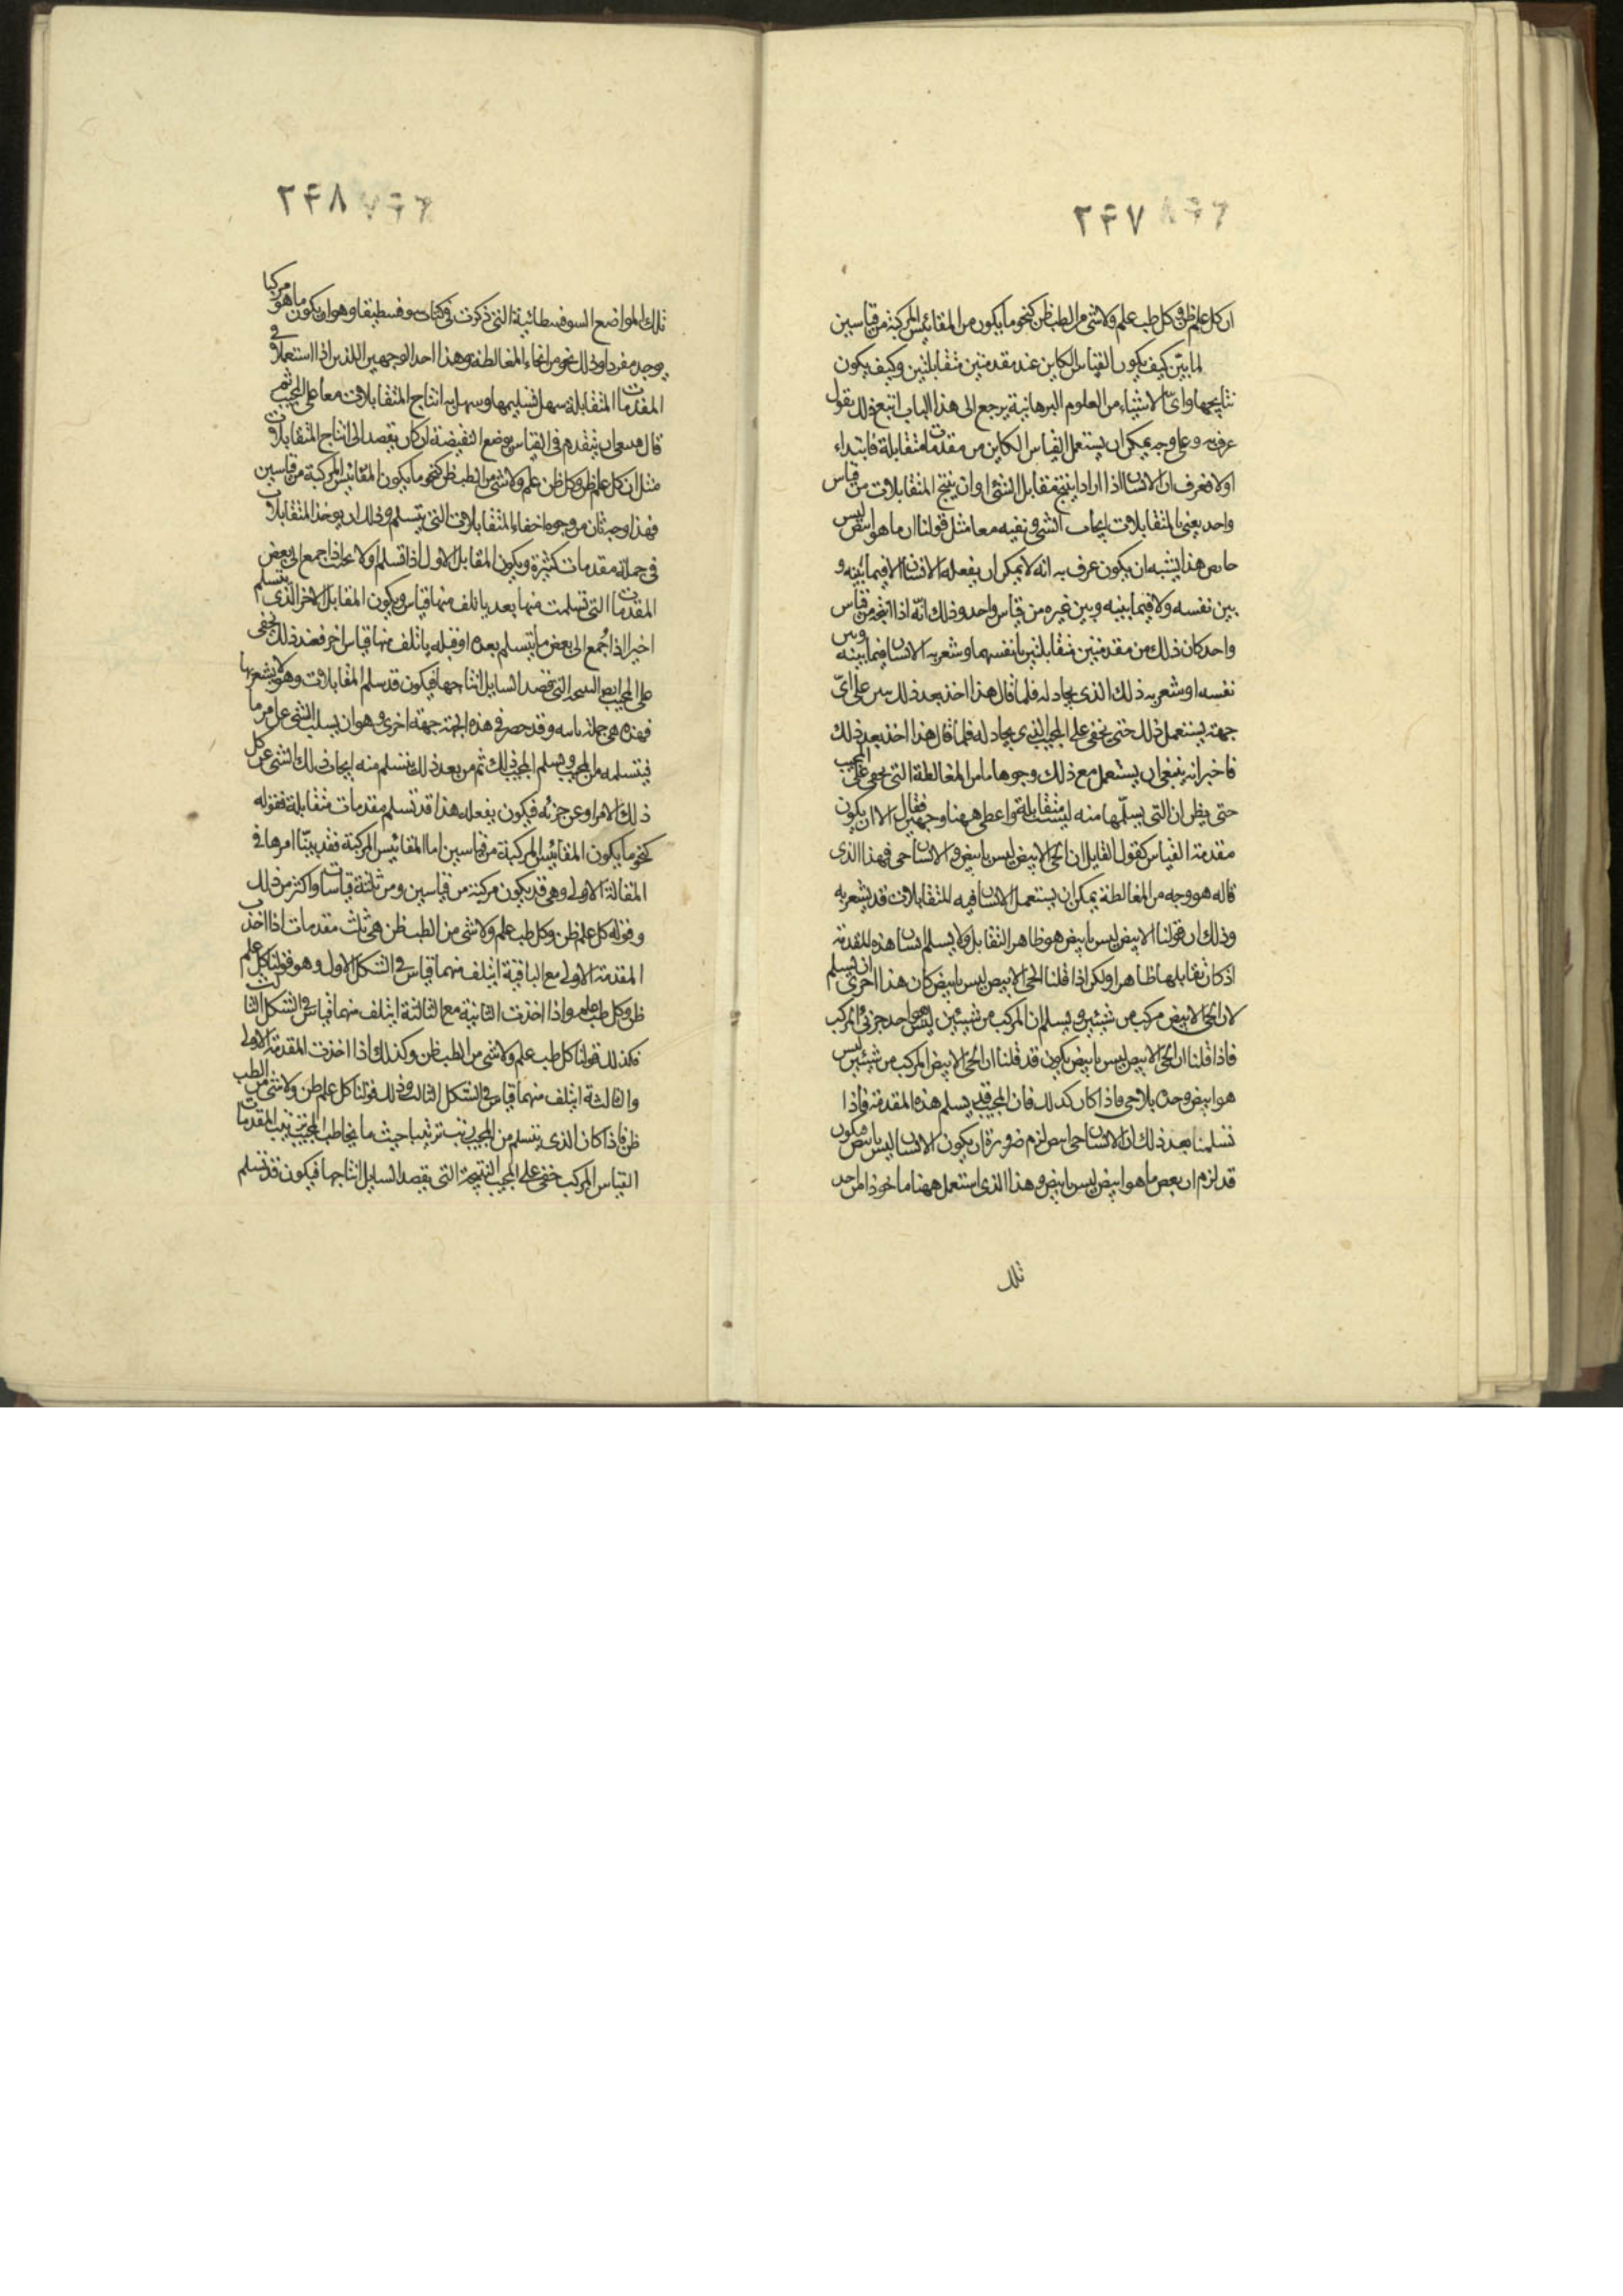 ۲۴۷
ان كل علم ظن وكل طب علم ولا شى من الطب ظن كنحو ما يكون من المقائيس المركبة من قياسين
لما بيّن كيف يكون القياس الكاين عند مقدمتين متقابلتين وكيف يكون
نتايجها واىّ الاشياء من العلوم البرهانية يرجع الى هذا الباب اتبع ذلك بقول
عرف به وعلى وجه يمكن ان يستعمل القياس الكاين من مقدمات متقابلة فابتداء
اولا فعرف ان الانسان اذا اراد ان ينتج مقابل الشئ او ان ينتج المتقابلات من قياس
واحد يعنى بالمتقابلات ايجاب الشى ونفيه معا مثل قولنا ان ما هو ابيض ليس
هذا يشبه ان يكون عرف به انه لا يمكن ان يفعله الانسان لا فيما بينه و
بين نفسه ولا فيما بينه وبين غيره من قياس واحد وذلك انّه اذا انتجه من قياس
واحد كان ذلك من مقدمتين متقابلتين بانفسهما وشعر به الانسان فيما بينه وبين
نفسه او شعر به ذلك الذى يجادله فلما قال هذا اخذ بعد ذلك على اىّ
جهة يستعمل ذلك حتى يخفى على المجيب الذى يجادله فلما قال هذا اخذ بعد ذلك
فاخبر انه ينبغى ان يستعمل مع ذلك وجوها ما من المغالطة التى يخفى على المجيب
حتى يظن ان التى يسلّمها منه ليست متقابلة واعطى ههنا وجهين فقال الا ان يكون
مقدمة القياس كقول القايل ان الحىّ الابيض ليس بابيض والانسان حى فهذا الذى
قاله هو وجه من المغالطة يمكن ان يستعمل الانسان فيه المتقابلات قد يشعر به
وذلك ان قولنا الابيض ليس بابيض هو ظاهر التقابل ولا يسلم هذه المقدمة
اذ كان تقابلها ظاهرا ولكن اذا قلنا الحى الابيض ليس بابيض كان هذا احرى ان يسلم
لان الحى الابيض مركب من شيئين ويسلم ان المركب من شيئين ليس هو احد جزئى المركب
فاذا قلنا ان الحىّ الابيض ليس بابيض يكون قد قلنا ان الحىّ الابيض المركب من شيئين ليس
هو ابيض وحده بلا حى فاذا كان كذلك فان المجيب يسلم هذه المقدمة فاذا
تسلمنا بعد ذلك ان الانسان حى ابيض لزم ضرورة ان يكون الانسان ليس بابيض فيكون
قد لزم ان بعض ما هو ابيض ليس بابيض وهذا الذى استعمل ههنا ماخوذ من احد
تلك
۲۴۸
تلك المواضع السوفسطائية التى ذكرت فى كتاب سوفسطيقا وهو ان يكون ما هو مركبا
يوجد مفردا وذلك نحو من انحاء المغالطة وهذا احد الوجهين اللذين اذا استعملا فى
المقدمات المتقابلة سهل تسليمها وسهل به انتاج المتقابلات معا على المجيب ثم
قال ان يتقدم فى القياس بوضع النقيضة ان كان يقصد الى انتاج المتقابلات
مثل ان كل علم ظن وكل ظن علم ولا شى من الطب ظن كنحو ما يكون المقائيس المركبة من قياسين
فهذا وجه ثان من وجوه اخفاء المتقابلات التى يتسلم وذلك ان يوخذ المتقابلات
فى جملة مقدمات كثيرة ويكون المقابل الاول اذا تسلم اولا بحيث اذا جمع الى بعض
المقدمات التى تسلمت منها بعد يأتلف منهما قياس ويكون المقابل الاخر الذى يتسلم
اخيرا اذا جُمع الى بعض ما يتسلم بعده او قبله يأتلف منها قياس اخر فعند ذلك يخفى
على المجيب النتيجة التى قصد السايل انتاجها فيكون قد سلم المقابلات وهو لا يشعر بها
فهذه هى جهة ثانية وقد حصر فى هذه الجهة جهة اخرى وهو ان يسلب الشى عن امر ما
فيتسلمه من المجيب ويسلم المجيب ذلك ثم من بعد ذلك يتسلم منه ايجاب ذلك الشى عن كل
ذلك الامر او عن جزئه فيكون بفعله هذا قد تسلم مقدمات متقابلة فقوله
كنحو ما يكون المقائيس المركبة من قياسين اما المقائيس المركبة فقد بيّنا امرها فى
المقالة الاولى وهى قد يكون مركبة من قياسين ومن ثلثة قياسات واكثر من ذلك
وقوله كل علم ظن وكل طب علم ولا شى من الطب ظن هى ثلث مقدمات اذا اخذت
المقدمة الاولى مع الباقية ايتلف منهما قياس فى الشكل الاول وهو قولنا كل علم
ظن وكل طب علم واذا اخذت الثانية مع الثالثة ايتلف منهما قياس فى الشكل الثالث
وكذلك قولنا كل طب علم ولا شى من الطب ظن وكذلك اذا اخذت المقدمة الاولى
والثالثة ايتلف منهما قياس فى الشكل الثانى وذلك قولنا كل علم ظن ولا شى من الطب
ظن فاذا كان الذى يتسلم من المجيب رتب ترتيبا حيث ما يخاطب المجيب ترتيب المقدمات
القياس المركب خفى على المجيب النتيجة التى يقصد السايل انتاجها فيكون قد تسلم